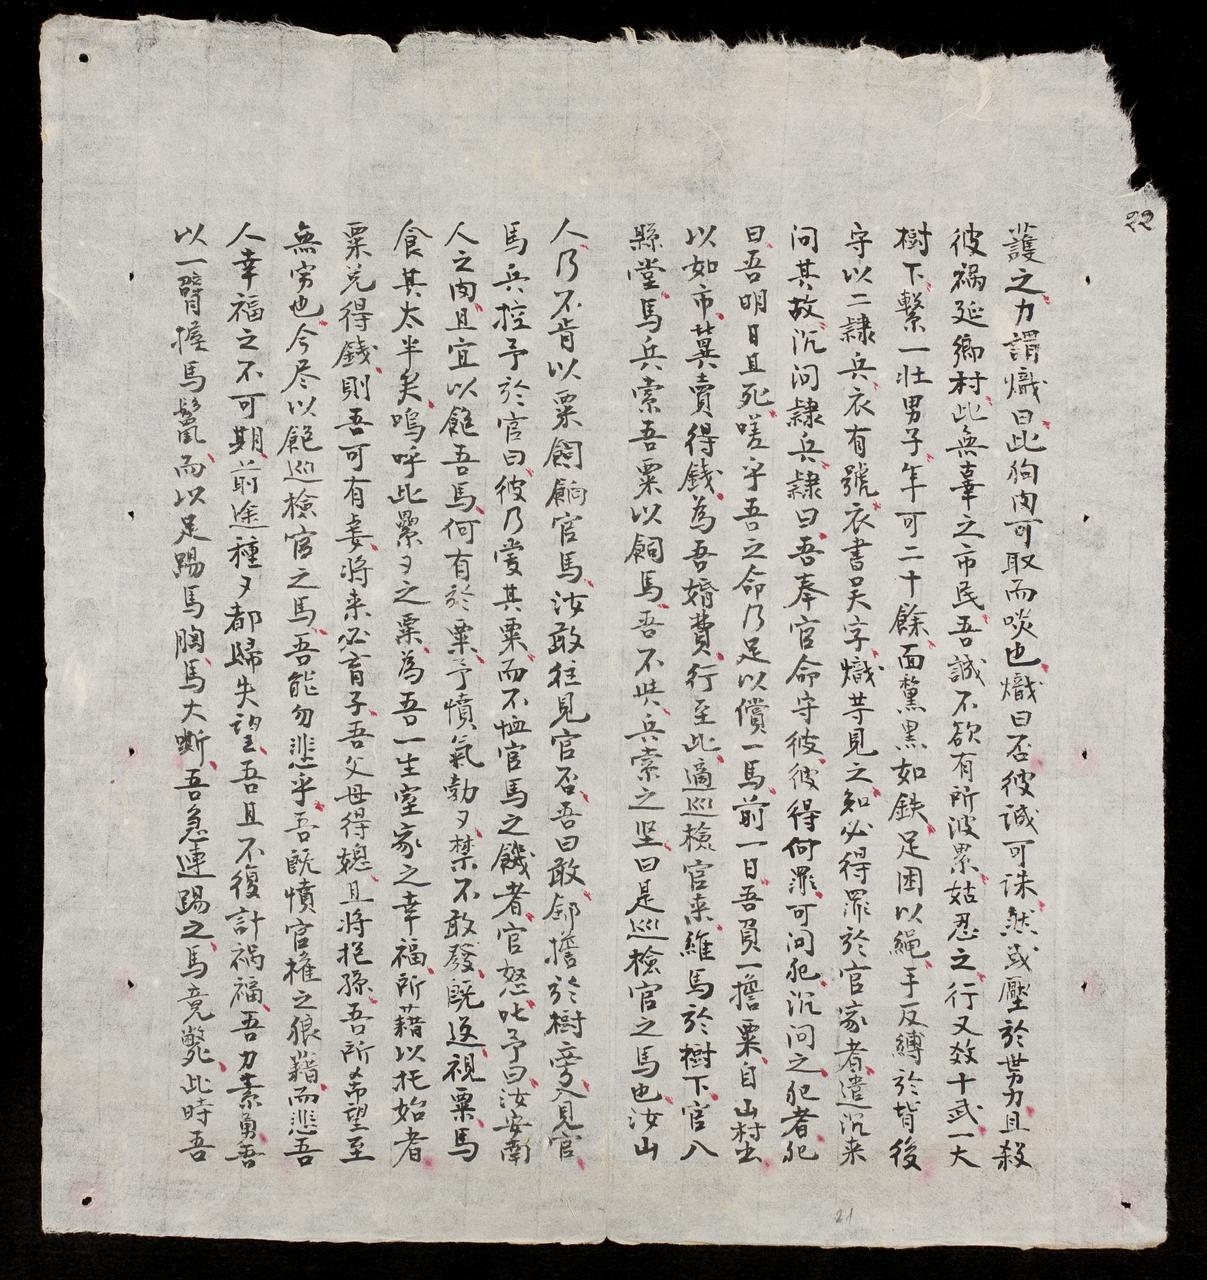 22
護之力謂熾曰此狗肉可取而啖也熾曰否彼誠可誅然或壓於世勢力且殺
彼禍延鄉村此無辜之市民吾誠不欲有所波累姑忍之行又数十武一大
樹下繫一壯男子年可二十餘面黧黑如鉄足困以繩手反縛於背後
守以二隸兵衣有號衣書吴字熾等見之知必得罪於官家者遣沉来
问其故沉问隸兵隸曰吾奉官命守彼彼得何罪可问犯沉问之犯者犯
曰吾明日且死嗟乎吾之命乃足以償一馬前一日吾負一擔粟自山村出
以如市冀賣得錢為吾婚費行至此適巡檢官来維馬於樹下官入
縣堂馬兵索吾粟以飼馬吾不與兵索之坚曰是巡檢官之馬也汝山
人乃不肯以粟飼餉官馬汝敢往見官否吾曰敢卸擔於樹旁入見官
馬兵控予於官曰彼乃愛其粟而不恤官馬之饑者官怒叱予曰汝安南
人之肉且宜以飽吾馬何有於粟予憤氣勃夕禁不敢發既返視粟馬
食其太半矣嗚呼此纍夕之粟為吾一生室家之幸福所藉以托始者
粟兑得錢則吾可有妻将来必育子吾父母得媳且将抱孫吾所希望至
無穷也今尽以飽巡檢官之馬吾能勿悲乎吾既憤官権之狼藉而悲吾
人幸福之不可期前途種夕都歸失望吾且不復計禍福吾力素勇吾
以一臂握馬鬣而以足踢馬胸馬大嘶吾急連踢之馬竟斃此時吾
21